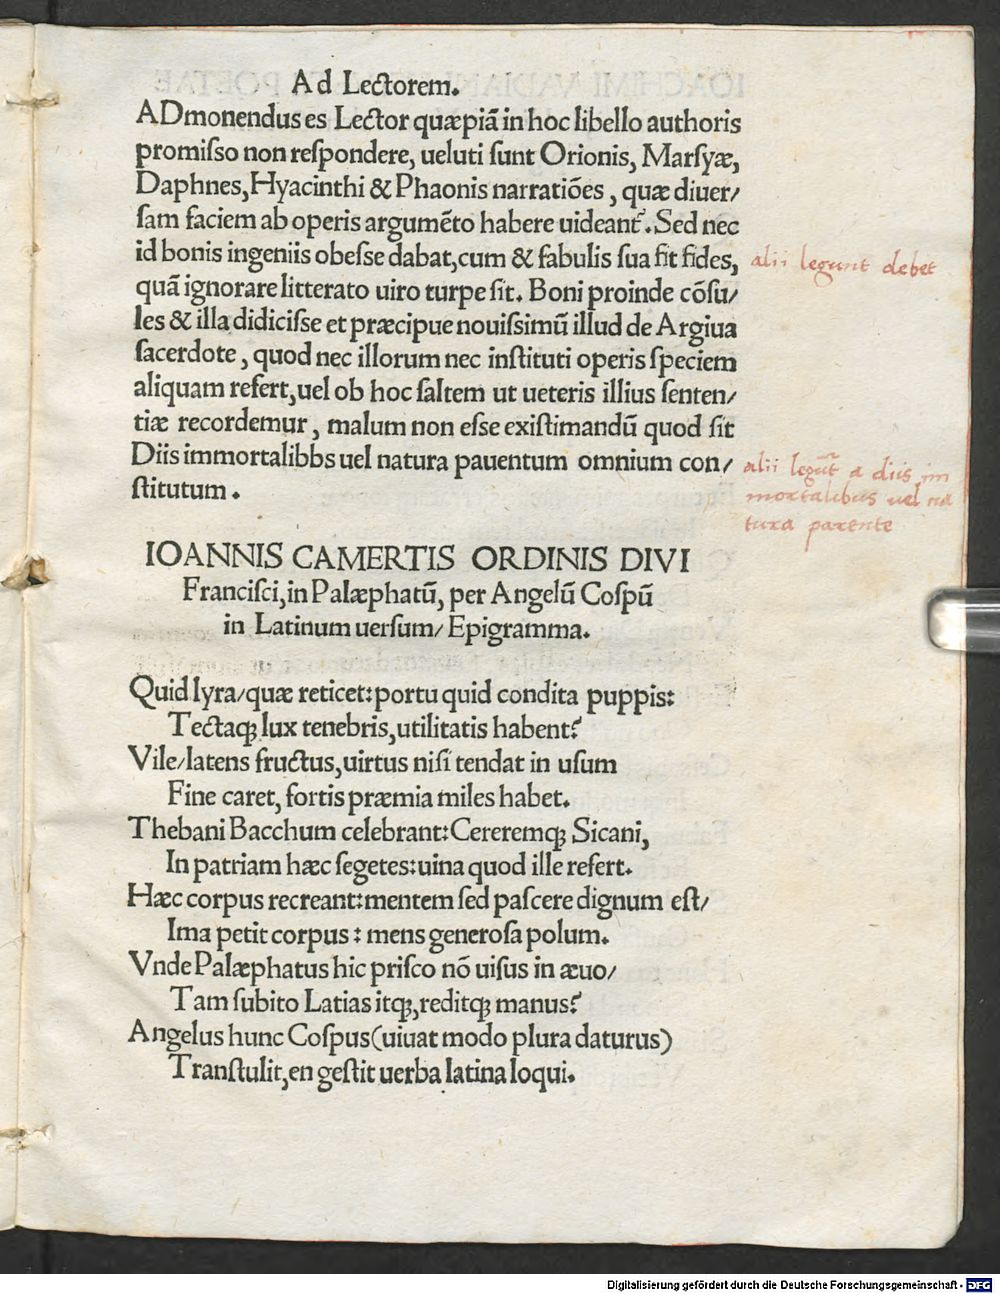 Ad Lectorem.
ADmonendus es Lector quæpiã in hoc libello authoris
promiſso non reſpondere, ueluti ſunt Orionis, Marſyæ,
Daphnes, Hyacinthi & Phaonis narratiões, quæ diuer/
ſam faciem ab operis argumẽto habere uideant᷑. Sed nec
id bonis ingeniis obeſse dabat, cum & fabulis ſua ſit fides,
alii legunt debet
quã ignorare litterato uiro turpe ſit. Boni proinde cõſu/
les & illa didiciſse et præcipue nouiſsimũ illud de Argiua
ſacerdote, quod nec illorum nec inſtituti operis ſpeciem
aliquam refert, uel ob hoc ſaltem ut ueteris illius ſenten/
tiæ recordemur, malum non eſse exiſtimandũ quod ſit
Diis immortalibbs uel natura pauentum omnium con/
ſtitutum.
alii legũt a diis im
mortalibus vel na
tura parente
IOANNIS CAMERTIS ORDINIS DIVI
Franciſci, in Palæphatũ, per Angelũ Coſpũ
in Latinum uerſum/ Epigramma.
Quid lyra/ quæ reticet: portu quid condita puppis:
Tectaqꝫ lux tenebris, utilitatis habent?
Vile/ latens fructus, uirtus niſi tendat in uſum
Fine caret, fortis præmia miles habet.
Thebani Bacchum celebrant: Cereremqꝫ Sicani,
In patriam hæc ſegetes: uina quod ille refert.
Hæc corpus recreant: mentem ſed paſcere dignum eſt/
Ima petit corpus: mens generoſa polum.
Vnde Palæphatus hic priſco nõ uiſus in æuo/
Tam ſubito Latias itqꝫ, reditqꝫ manus?
Angelus hunc Coſpus (uiuat modo plura daturus)
Tranſtulit, en geſtit uerba latina loqui.
Digitalisierung gefördert durch die Deutsche Forschungsgemeinschaft - DFG